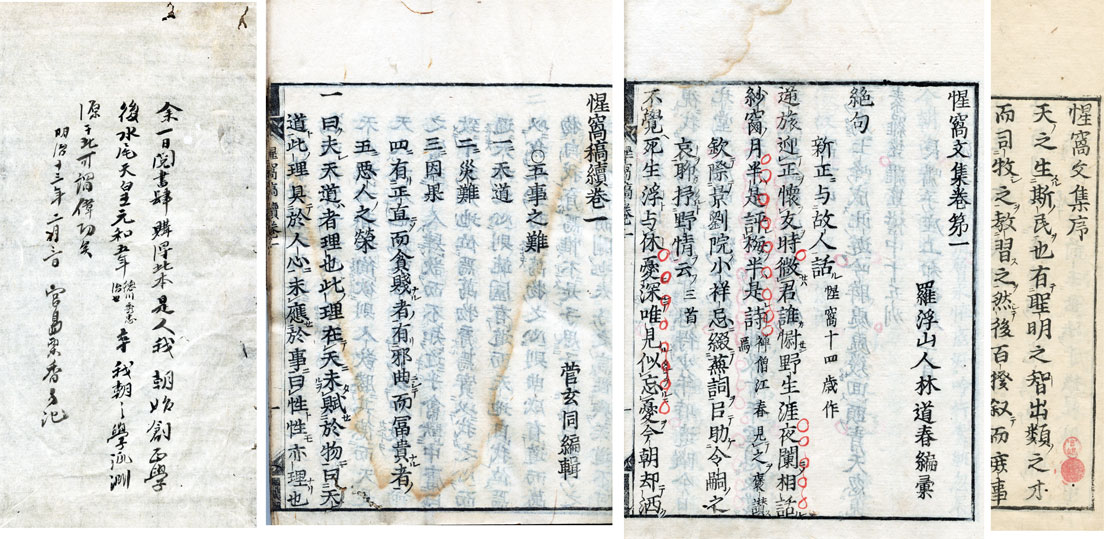 惺窩文集序
天之生斯民也有聖明之智出類之才
而司牧之教習之然後百揆叙而庶事
惺窩文集卷第一
羅浮山人林道春編彙
絶句
新正与故人話 惺窩十四歳作
逆旅迎正懷友時微君誰慰野生涯夜闌相話
紗窗月半是評梅半是詩 禅僧江春見之褒讃焉
欽際景劉院小祥忌綴蕪詞吕助令嗣之
哀聊抒野情云 三首
不覺死生浮与休憂深唯見似忘憂今朝却洒
惺窩稿卷一
惺窩稿續卷一
菅玄同編輯
○五事之難
一天道
二災難
三因果
四有正直而貪賤者有邪曲而冨貴者
五悪人之榮
一曰夫天道者理也此理在天未賦於物曰天
道此理具於人心未應於事曰性性亦理也
惺窩稿續卷一
一
余一日閲書肆購得此本是人我朝始創正學
後水尾天皇元和五年 卒我朝之學淵
源于此可謂偉功矣
明治十三年二月 宮島栗香 記